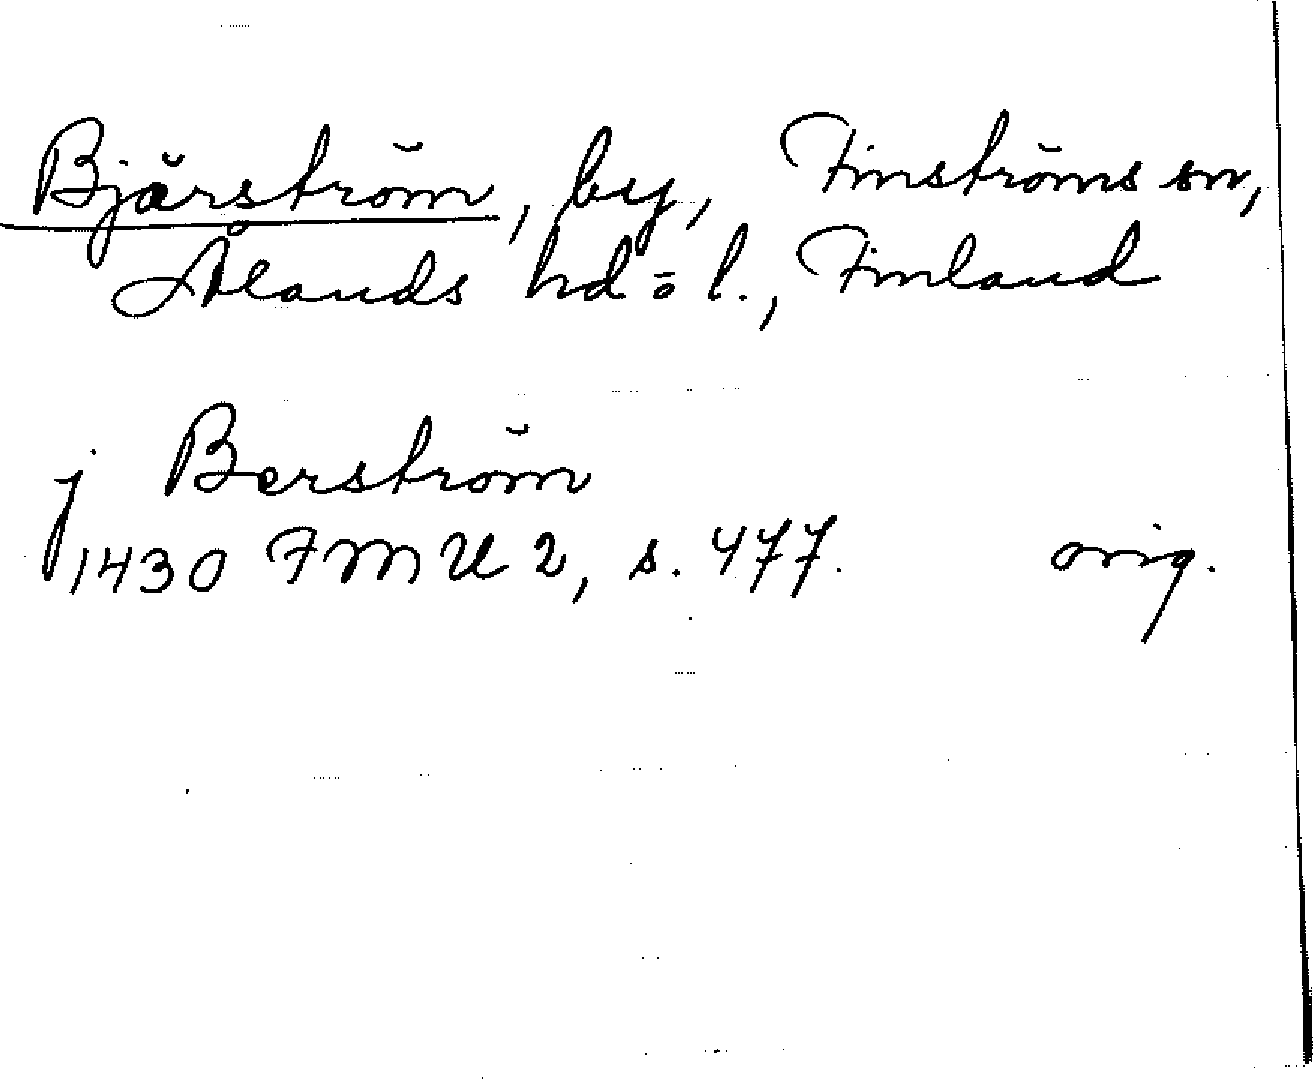 Bjärström, by, Finströms sn,
Ålands hd o l., Finland
j Berström
1430 FMU 2, s. 477. orig.